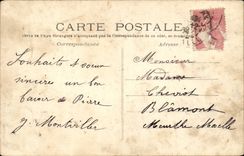 CARTE POSTALE
Correspondance
Adresse
Souhaits & voeux
sincères un bon
baiser de Pierre
J. Montviller
Monsieur
Madame
Cheviot
Blâmont
Meurthe Moselle